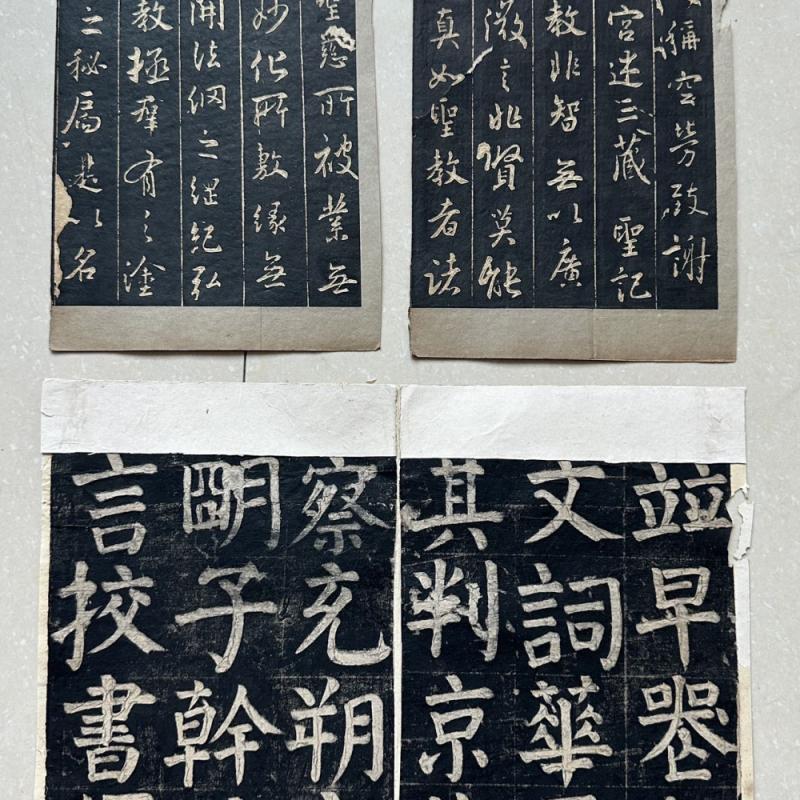 稱空勞致謝
宮述三藏聖記
教非智無以廣
微言非賢莫能
真如聖教者諸
聖慈所被業無
妙化所敷緣無
開法網之綱紀弘
教拯群有之塗
之秘扃是以名
竝早
文詞華
其判京
察充朔
明子幹
言挍書